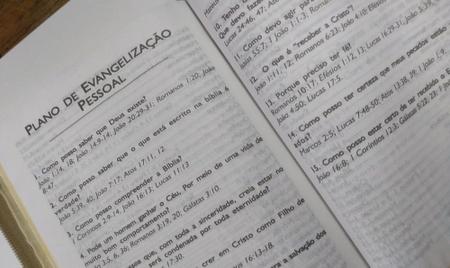 PLANO DE EVANGELIZAÇÃO
PESSOAL
1. Como posso saber que Deus existe?
João 1:14, 18; João 14:9-14; João 20:29-31; Romanos 1:20; João
8:47
2. Como posso saber que o que está escrito na bíblia é
verdade?
João 5:39, 40; João 7:17; Atos 17:11, 12
3. Como posso compreender a Bíblia?
I Coríntios 2:9-14; João 16:13; Lucas 11:13
4. Pode um homem ganhar o Céu, por meio de uma vida de
muito bom comportamento?
3:3, 5, 6, 36; Romanos 3:19, 20; Gálatas 3:10
que, com toda a sinceridade, creia estar no
será condenada por toda eternidade?
17:30
crer em Cristo como Filho de
16:13-18
para a salvação dos
10. Tenho
Que devo fazer
Lucas 24:46, 47; Atos
11. Como devo agir para
Isaías 55:7; I João 1:1-3; Romanos
12. O que é "receber a Cristo"?
João 1:11, 12; Romanos 6:23; João 4:10; Efésios
13. Porque preciso ter fé?
Romanos 10:17; Efésios 1:12, 13; Lucas 16:29-31; João 5:39
João 4:50; Lucas 17:5
14. Como posso ter certeza que meus pecados estão
Marcos 2:5; Lucas 7:48-50; Atos 13:38, 39; I João 1:9
15. Como posso estar certo de ter recebido o
João 16:8; I Coríntios 12:3; Gálatas 5:22, 23; I